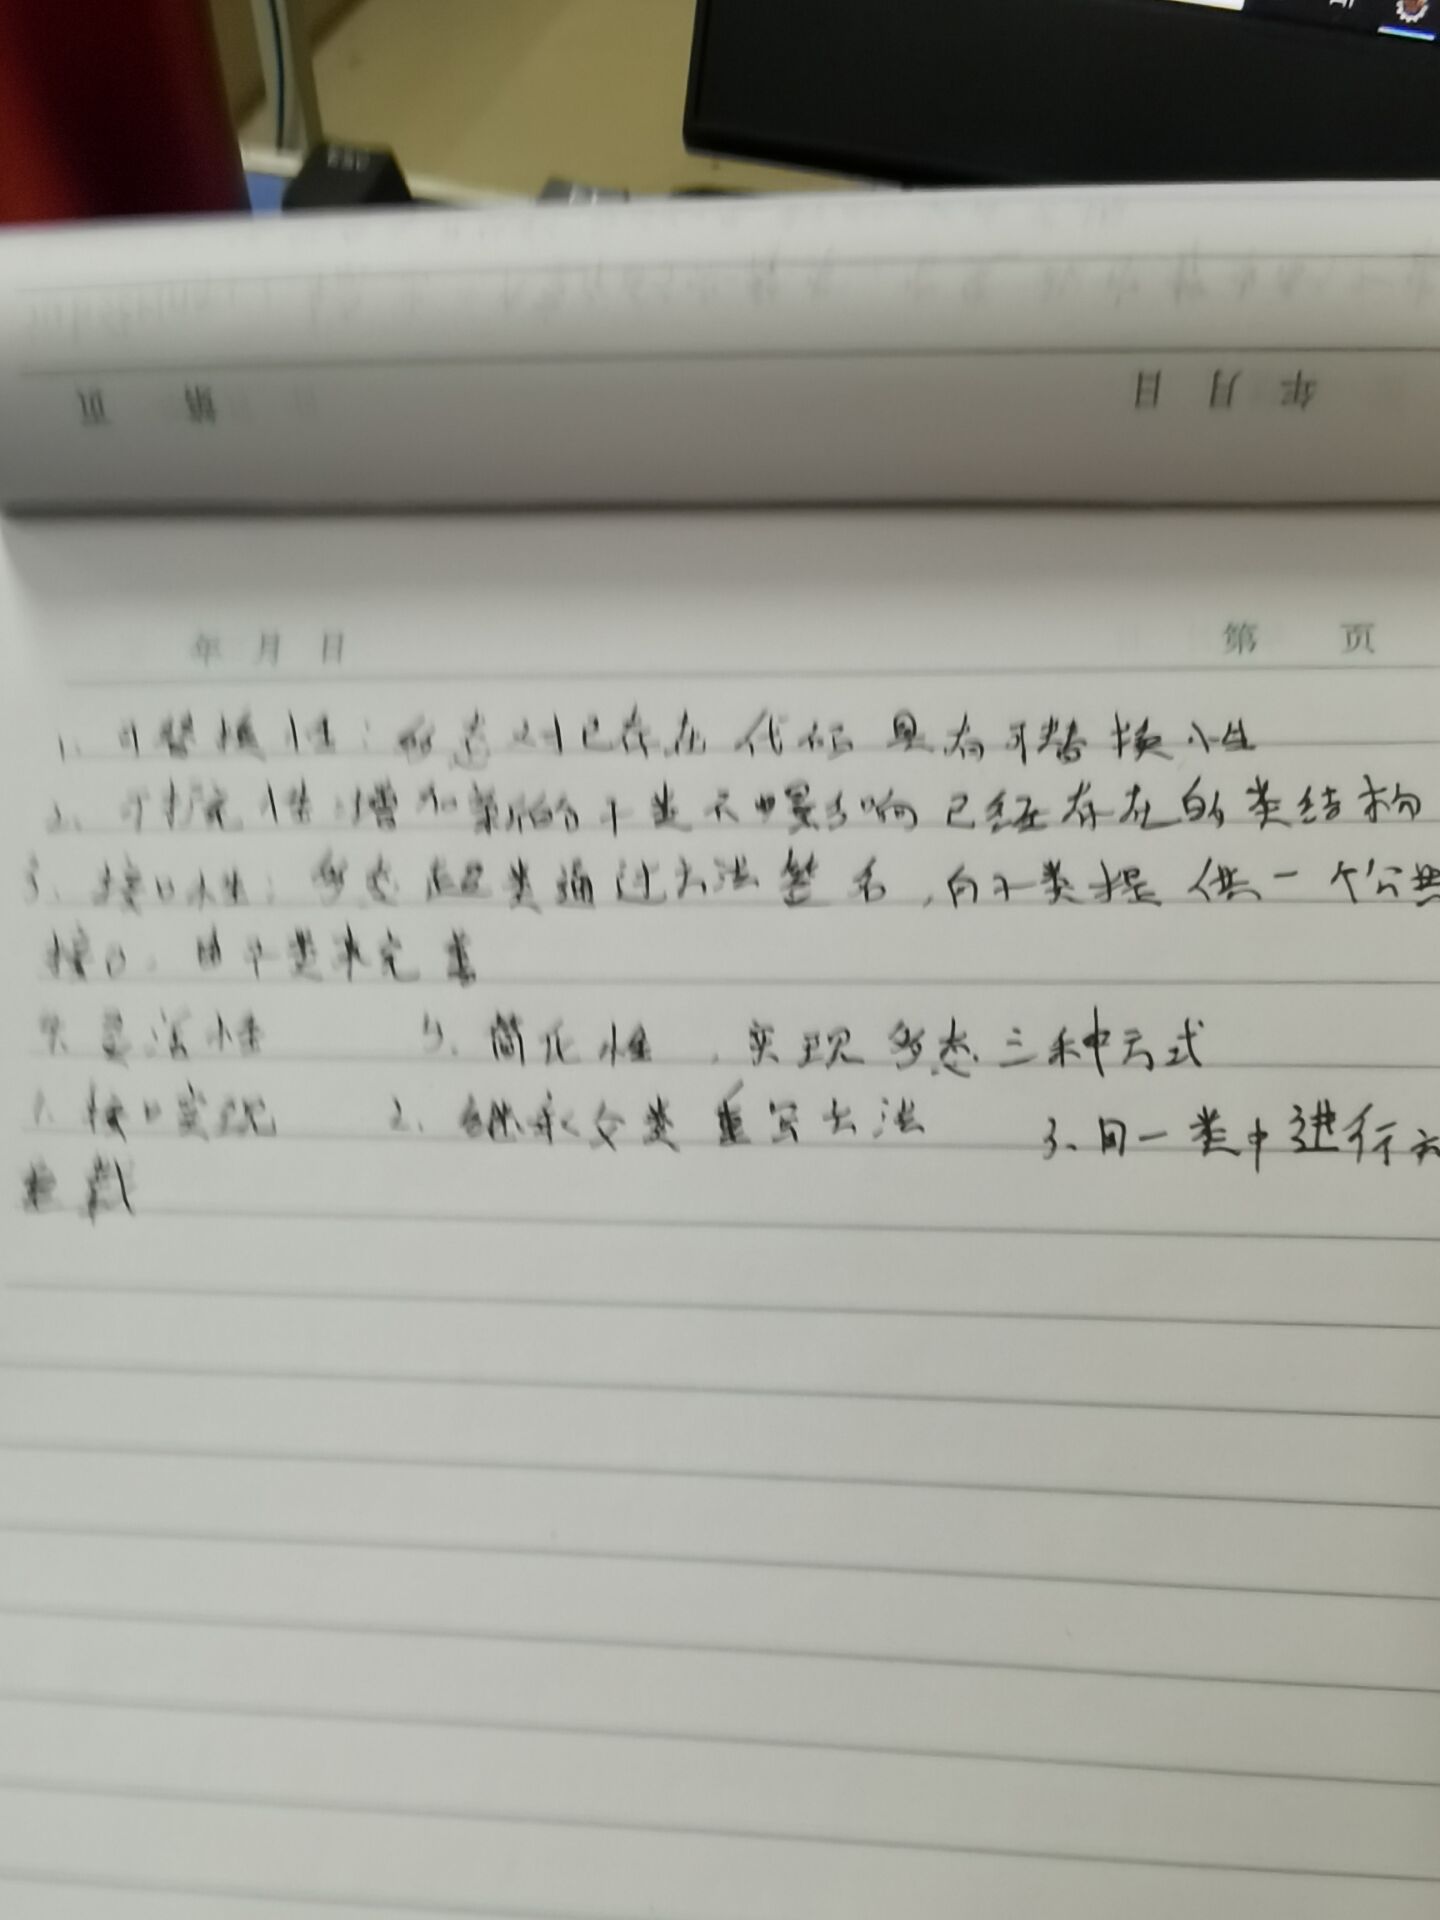 ESC
第 页
年 月 日
年 月 日 第 页
1. 可替换性：多态对已存在代码具有可替换性
2. 可扩充性：增加新的子类不影响已经存在的类结构
3. 接口性：多态是超类通过方法签名，向子类提供一个公共
接口，由子类来完善
4. 灵活性 5. 简化性，实现多态三种方式
1. 接口实现 2. 继承父类重写方法 3. 同一类中进行方
重载